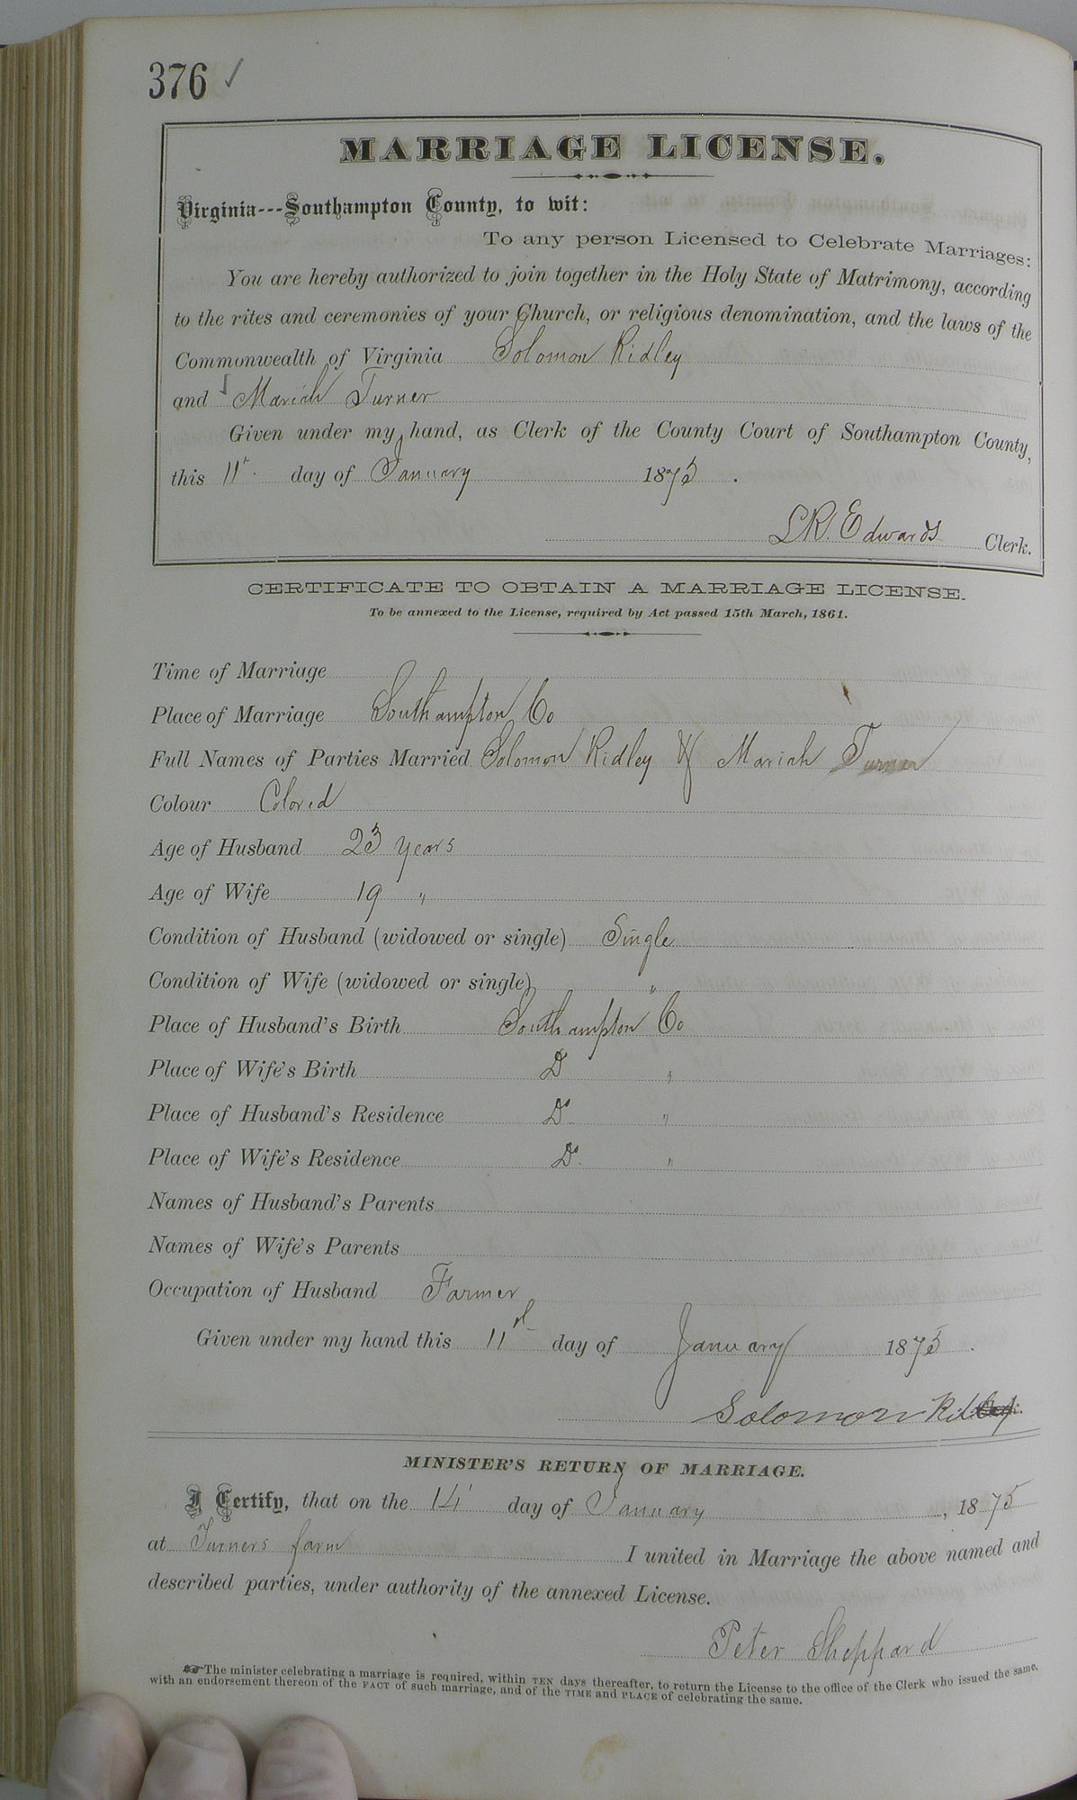 376 ✓
MARRIAGE LICENSE.
Virginia---Southampton County, to wit:
To any person Licensed to Celebrate Marriages:
You are hereby authorized to join together in the Holy State of Matrimony, according
to the rites and ceremonies of your Church, or religious denomination, and the laws of the
Commonwealth of Virginia Solomon Ridley
and Mariah Turner
Given under my hand, as Clerk of the County Court of Southampton County,
this 11th day of January 1875.
L.R. Edwards Clerk.
CERTIFICATE TO OBTAIN A MARRIAGE LICENSE.
To be annexed to the License, required by Act passed 15th March, 1861.
Time of Marriage
Place of Marriage Southampton Co
Full Names of Parties Married Solomon Ridley & Mariah Turner
Colour Colored
Age of Husband 23 years
Age of Wife 19 "
Condition of Husband (widowed or single) Single
Condition of Wife (widowed or single) "
Place of Husband's Birth Southampton Co
Place of Wife's Birth Do "
Place of Husband's Residence Do "
Place of Wife's Residence Do "
Names of Husband's Parents
Names of Wife's Parents
Occupation of Husband Farmer
Given under my hand this 11th day of January 1875.
Solomon Ridley
MINISTER'S RETURN OF MARRIAGE.
I Certify, that on the 14 day of January, 1875
at Turners farm I united in Marriage the above named and
described parties, under authority of the annexed License.
Peter Sheppard
☞ The minister celebrating a marriage is required, within TEN days thereafter, to return the License to the office of the Clerk who issued the same,
with an endorsement thereon of the FACT of such marriage, and of the TIME and PLACE of celebrating the same.